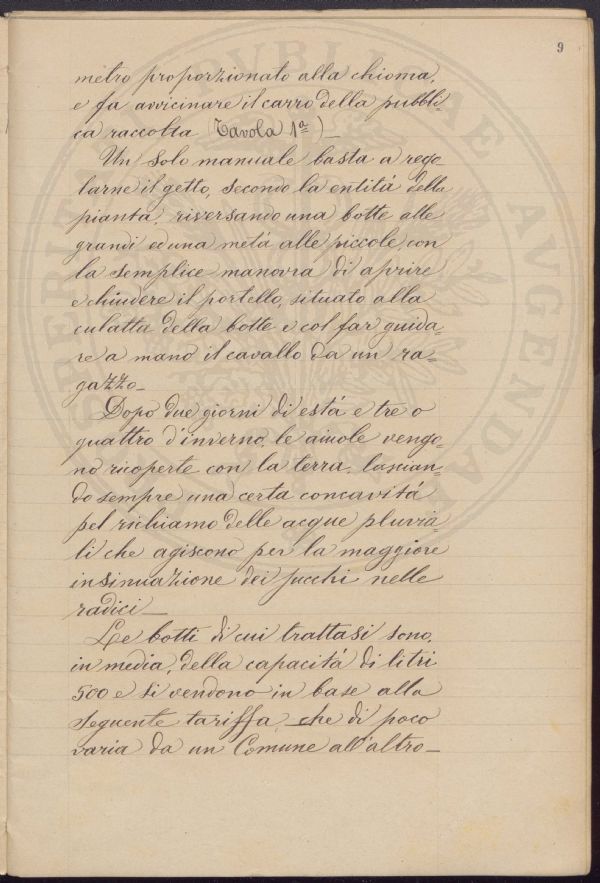 9
metro proporzionato alla chioma,
e fa avvicinare il carro della pubbli-
ca raccolta (Tavola 1ª)_
Un solo manuale basta a rego
larne il getto, secondo la entità della
pianta, riversando una botte alle
grandi ed una metà alle piccole, con
la semplice manovra di aprire
e chiudere il portello, situato alla
culatta della botte e col far guida-
re a mano il cavallo da un ra-
gazzo_
Dopo due giorni di està e tre o
quattro d'inverno, le aiuole vengo-
no ricoperte con la terra, lascian-
do sempre una certa concavità
pel richiamo delle acque pluvia-
li che agiscono per la maggiore
insinuazione dei succhi nelle
radici_
Le botti di cui trattasi sono,
in media, della capacità di litri
500 e si vendono in base alla
seguente tariffa, che di poco
varia da un Comune all'altro_
PVBLICAE
AVGENDAE